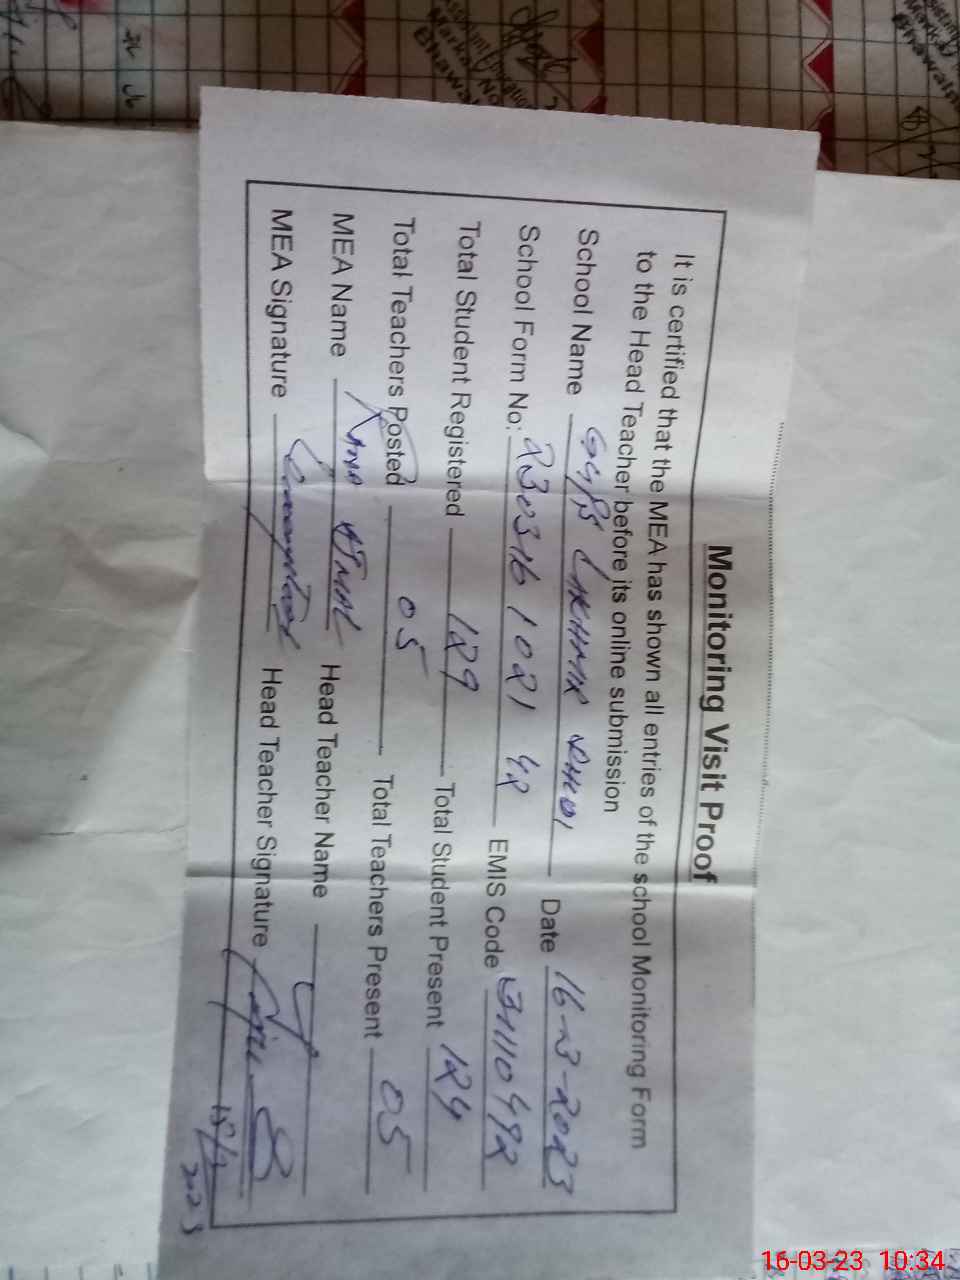 Monitoring Visit Proof
It is certified that the MEA has shown all entries of the school Monitoring Form
to the Head Teacher before its online submission
School Name GGPS Date 16-03-2023
School Form No: 230316 1021 42 EMIS Code 31110492
Total Student Registered 129 Total Student Present 124
Total Teachers Posted 05 Total Teachers Present 05
MEA Name Rana Head Teacher Name
MEA Signature Head Teacher Signature
2023
16-03-23 10:34